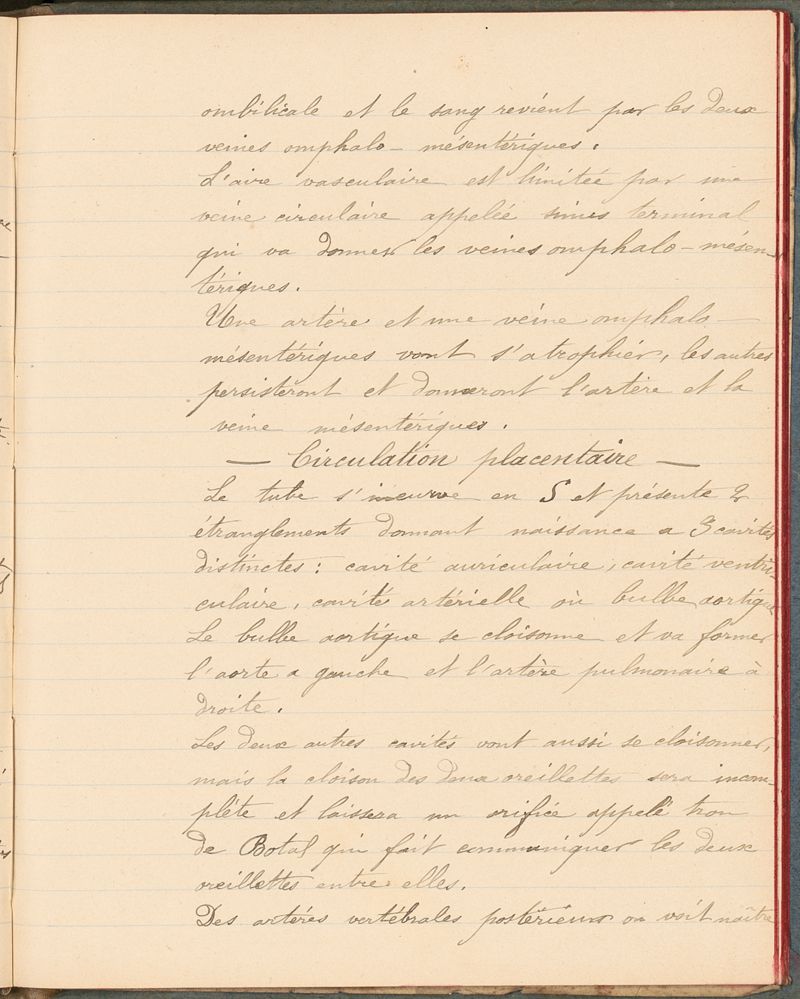 ombilicale et le sang revient par les deux
veines omphalo-mésentériques.
L'aire vasculaire est limitée par une
veine circulaire appelée sinus terminal
qui va donner les veines omphalo-mésen-
tériques.
Une artère et une veine omphalo-
mésentériques vont s'atrophier, les autres
persisteront et donneront l'artère et la
veine mésentériques.
— Circulation placentaire —
Le tube s'incurve en S et présente 2
étranglements donnant naissance a 3 cavités
distinctes : cavité auriculaire, cavité ventri-
culaire, cavité artérielle où bulbe aortique
Le bulbe aortique se cloisonne et va former
l'aorte a gauche et l'artère pulmonaire à
droite.
Les deux autres cavités vont aussi se cloisonner,
mais la cloison des deux oreillettes sera incom-
plète et laissera un orifice appelé trou
de Botal qui fait communiquer les deux
oreillettes entre elles.
Des artères vertébrales postérieurs on voit naître